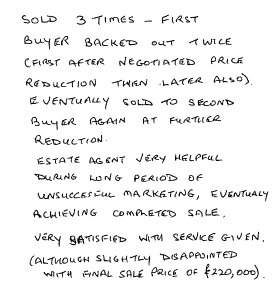 SOLD 3 TIMES - FIRST
BUYER BACKED OUT TWICE
(FIRST AFTER NEGOTIATED PRICE
REDUCTION THEN LATER ALSO).
EVENTUALLY SOLD TO SECOND
BUYER AGAIN AT FURTHER
REDUCTION.
ESTATE AGENT VERY HELPFUL
DURING LONG PERIOD OF
UNSUCCESFUL MARKETING, EVENTUALY
ACHIEVING COMPLETED SALE.
VERY SATISFIED WITH SERVICE GIVEN.
(ALTHOUGH SLIGHTLY DISAPPOINTED
WITH FINAL SALE PRICE OF £220,000).